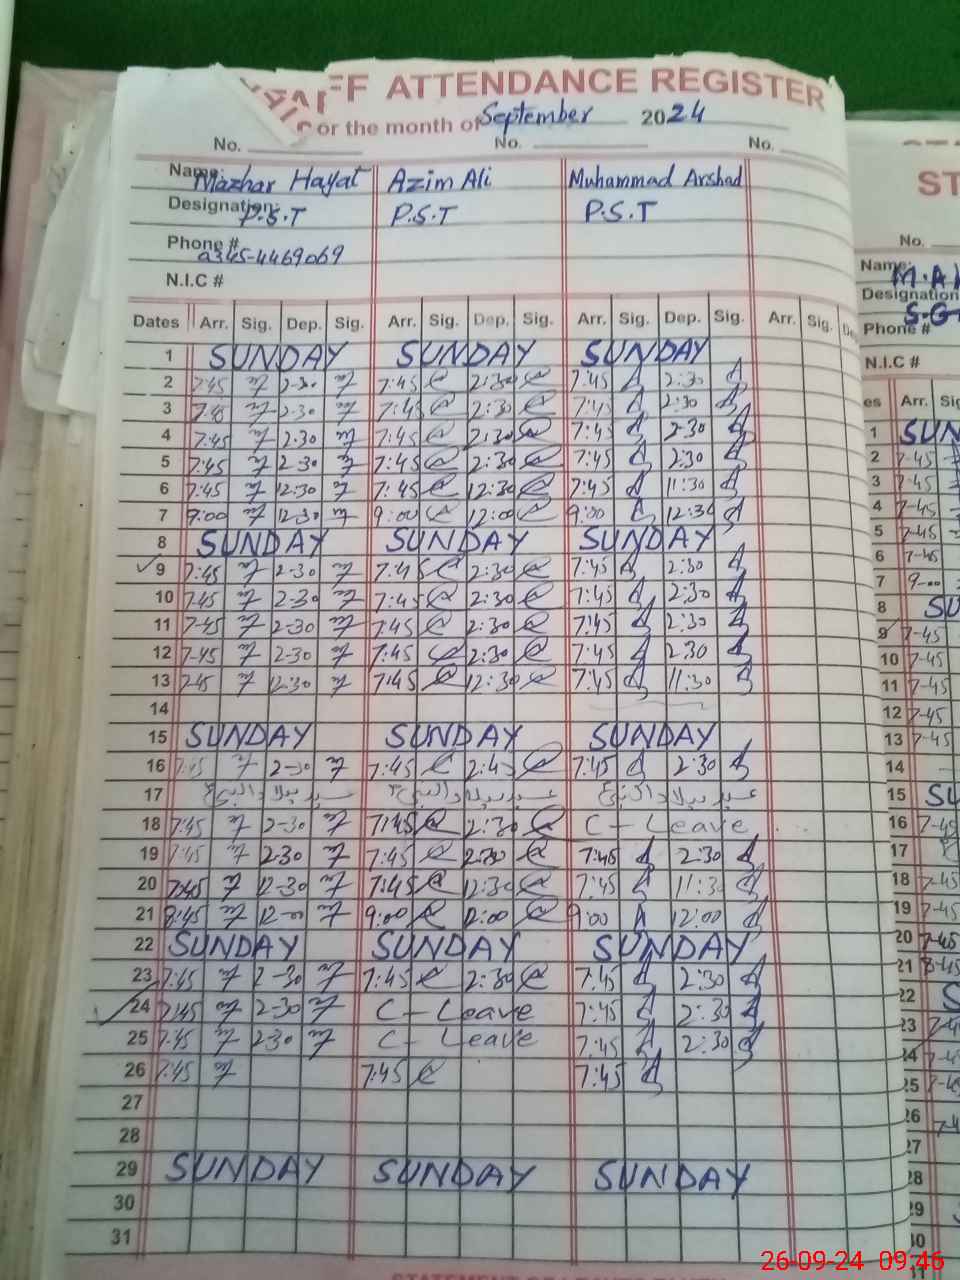 STAFF ATTENDANCE REGISTER
For the month of September 2024
No. No. No.
Name: Mazhar Hayat Azim Ali Muhammad Arshad
Designation: P.S.T P.S.T P.S.T
Phone # 0345-4469069
N.I.C #
Dates Arr. Sig. Dep. Sig. Arr. Sig. Dep. Sig. Arr. Sig. Dep. Sig. Arr. Sig.
1 SUNDAY SUNDAY SUNDAY
2 7:45 2-30 7:45 2:30 7:45 2:30
3 2-30 7:45 2:30 7:45 2:30
4 7:45 2-30 7:45 2:30 7:45 2:30
5 7:45 2-30 7:45 2:30 7:45 2:30
6 7:45 12:30 7:45 12:30 7:45 11:30
7 9:00 12:30 9:00 12:00 9:00 12:30
8 SUNDAY SUNDAY SUNDAY
9 7:45 2-30 7:45 2:30 7:45 2:30
10 7:45 2-30 7:45 2:30 7:45 2:30
11 7-45 2-30 7:45 2:30 7:45 2:30
12 7-45 2-30 7:45 2:30 7:45 2:30
13 7-45 12:30 7:45 12:30 7:45 11:30
14
15 SUNDAY SUNDAY SUNDAY
16 7:45 2-30 7:45 2:45 7:45 2:30
17 عید میلاد النبیؐ عید میلاد النبیؐ عید میلاد النبیؐ
18 7:45 2-30 7:45 2:30 C-Leave
19 7:45 2-30 7:45 2:30 7:45 2:30
20 7:45 12-30 7:45 12:30 7:45 11:30
21 8:45 12-00 9:00 12:00 9:00 12:00
22 SUNDAY SUNDAY SUNDAY
23 7:45 2-30 7:45 2:30 7:45 2:30
24 7:45 2-30 C-Leave 7:45 2:30
25 7:45 2-30 C-Leave 7:45 2:30
26 7:45 7:45 7:45
27
28
29 SUNDAY SUNDAY SUNDAY
30
31
No.
Name:
Designation
Phone #
N.I.C #
Arr.
1
2 7-45
3 7-45
4 7-45
5 7-45
6 7-45
7 9-00
8
9 7-45
10 7-45
11 7-45
12 7-45
13 7-45
14
15
16 7-45
17
18 7-45
19 7-45
20 7-45
21 8-45
22
23
24
25
26
27
28
29
30
26-09-24 09:46